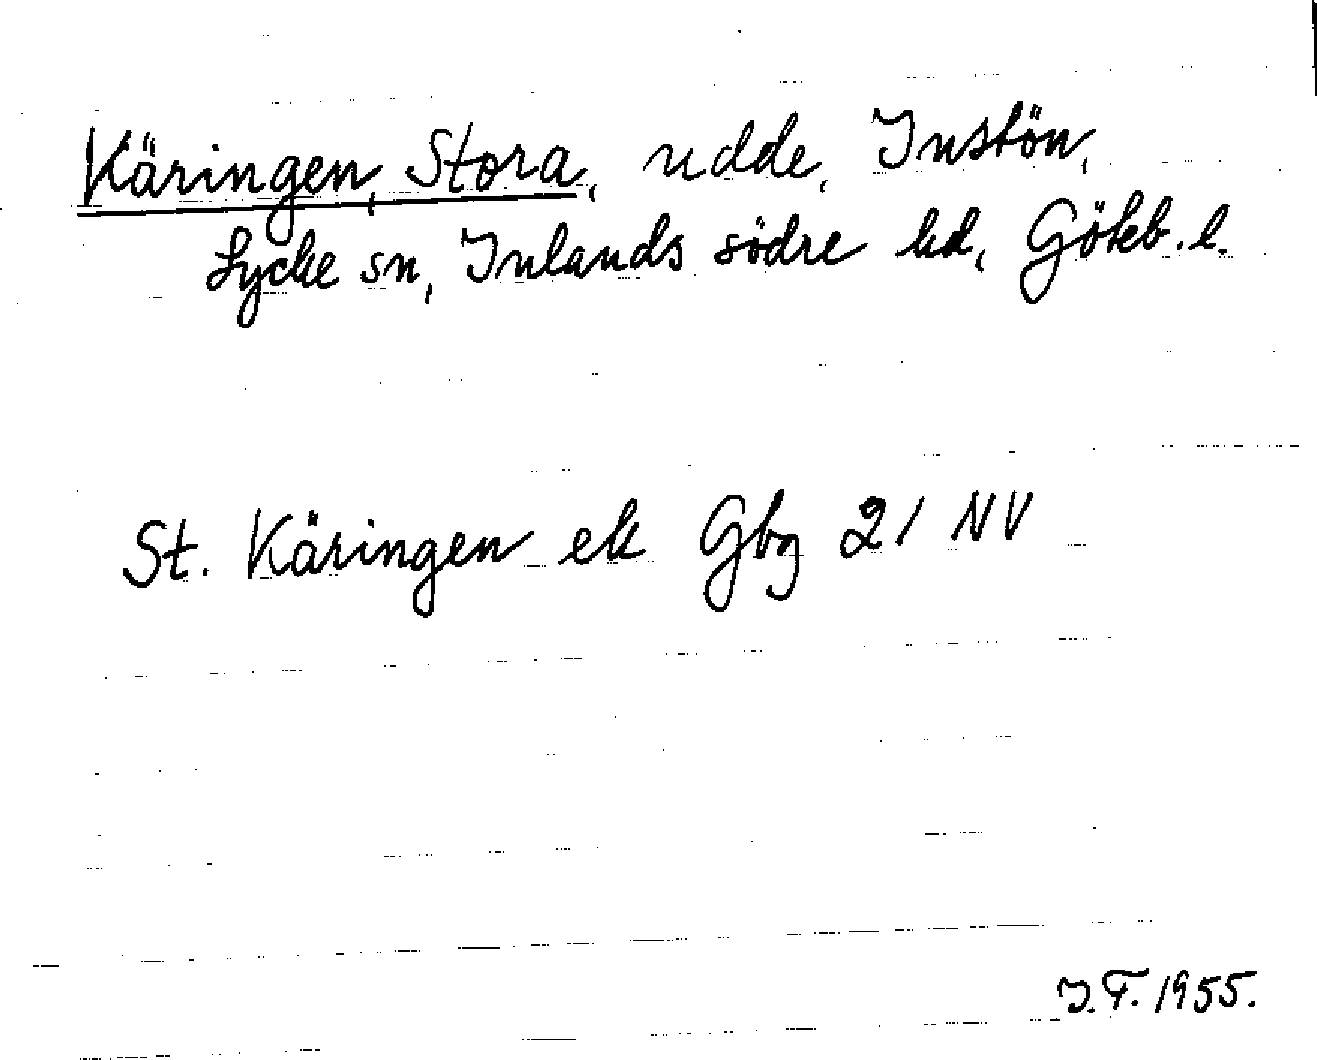 Käringen, Stora, udde, Instön,
Lycke sn, Inlands södre hd, Göteb. l.
St. Käringen ek Gbg 21 NV
I.F. 1955.